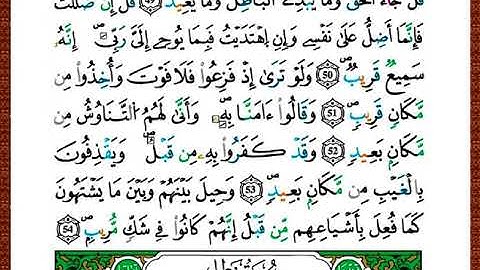 قُلْ جَآءَ ٱلْحَقُّ وَمَا يُبْدِئُ ٱلْبَٰطِلُ وَمَا يُعِيدُ ٤٩ قُلْ إِن ضَلَلْتُ
فَإِنَّمَآ أَضِلُّ عَلَىٰ نَفْسِى وَإِنِ ٱهْتَدَيْتُ فَبِمَا يُوحِىٓ إِلَىَّ رَبِّىٓ ۚ إِنَّهُۥ
سَمِيعٌ قَرِيبٌ 50 وَلَوْ تَرَىٰٓ إِذْ فَزِعُوا۟ فَلَا فَوْتَ وَأُخِذُوا۟ مِن
مَّكَانٍ قَرِيبٍ 51 وَقَالُوٓا۟ ءَامَنَّا بِهِۦ وَأَنَّىٰ لَهُمُ ٱلتَّنَاوُشُ مِن
مَّكَانٍۭ بَعِيدٍ 52 وَقَدْ كَفَرُوا۟ بِهِۦ مِن قَبْلُ ۖ وَيَقْذِفُونَ
بِٱلْغَيْبِ مِن مَّكَانٍۭ بَعِيدٍ 53 وَحِيلَ بَيْنَهُمْ وَبَيْنَ مَا يَشْتَهُونَ
كَمَا فُعِلَ بِأَشْيَاعِهِم مِّن قَبْلُ ۚ إِنَّهُمْ كَانُوا۟ فِى شَكٍّ مُّرِيبٍۭ 54